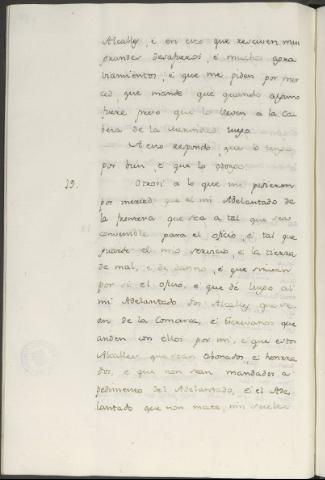 Alcalles, é en eso que resciven mui
grandes desafueros, é muchos agra
viamientos, é que me piden por mer
ced, que mande que quando alguno
fuere preso que lo lleven a la Ca
beza de la Merindad luego.
A esto respondo, que lo tengo
por bien, é que lo otorgo.
19. Otrosi a lo que me pidieron
por merced que el mi Adelantado de
la frontera que sea a tal que sea
convenible para el oficio, é tal que
guarde el mio servicio, é la tierra
de mal, é de danno, é que sirvan
por si el oficio, é que dé luego al
mi Adelantado dos Alcalles que se
an de la Comarca, é Escrivanos que
anden con ellos por mi, é que estos
Alcalles que sean abonados, é honra
dos, é que non sean mandados a
pedimento del Adelantado, é el Ade
lantado que non mate, nin suelte